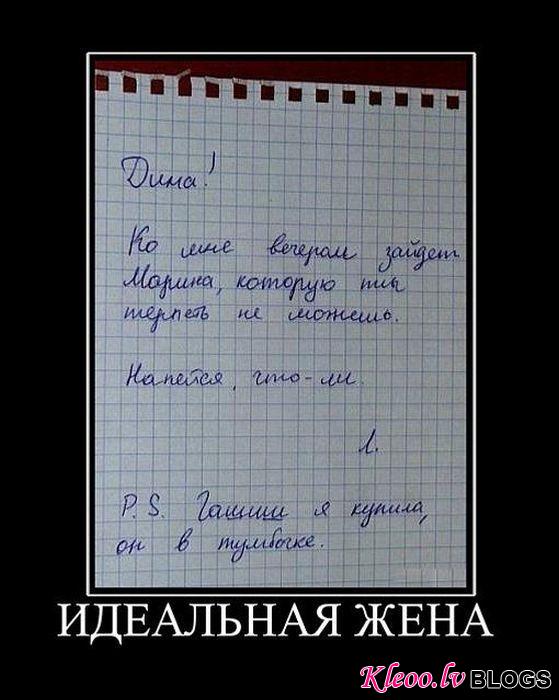 Дима!
Ко мне вечером зайдет
Марина, которую ты
терпеть не можешь.
Напейся, что-ли.
Л.
P.S. Гашиш я купила,
он в тумбочке.
ИДЕАЛЬНАЯ ЖЕНА
Kleoo.lv BLOGS